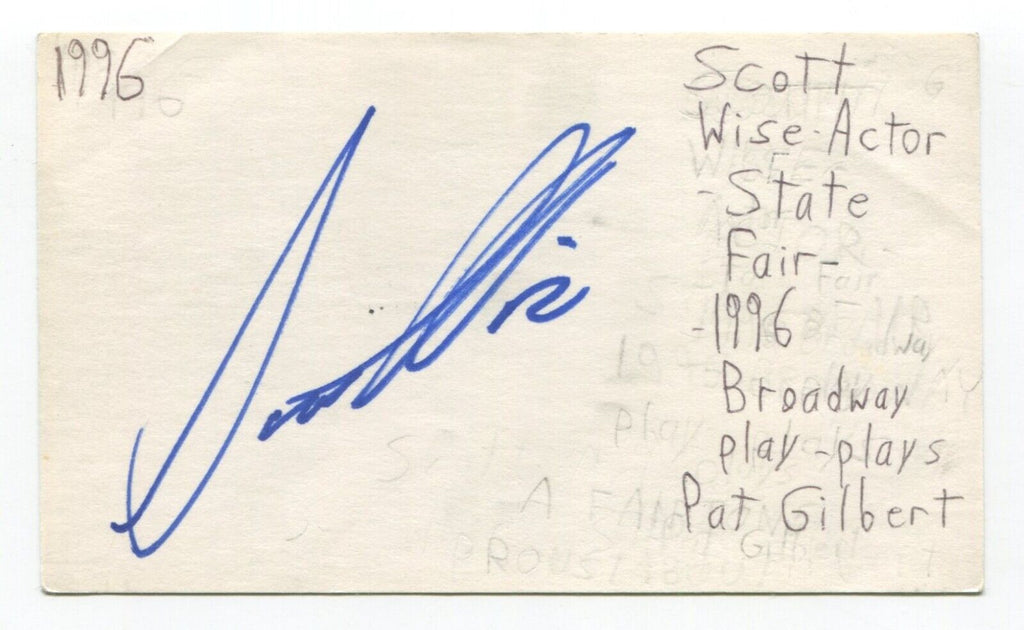 1996
Scott
Wise-Actor
-State
Fair-
-1996
Broadway
play-plays
Pat Gilbert